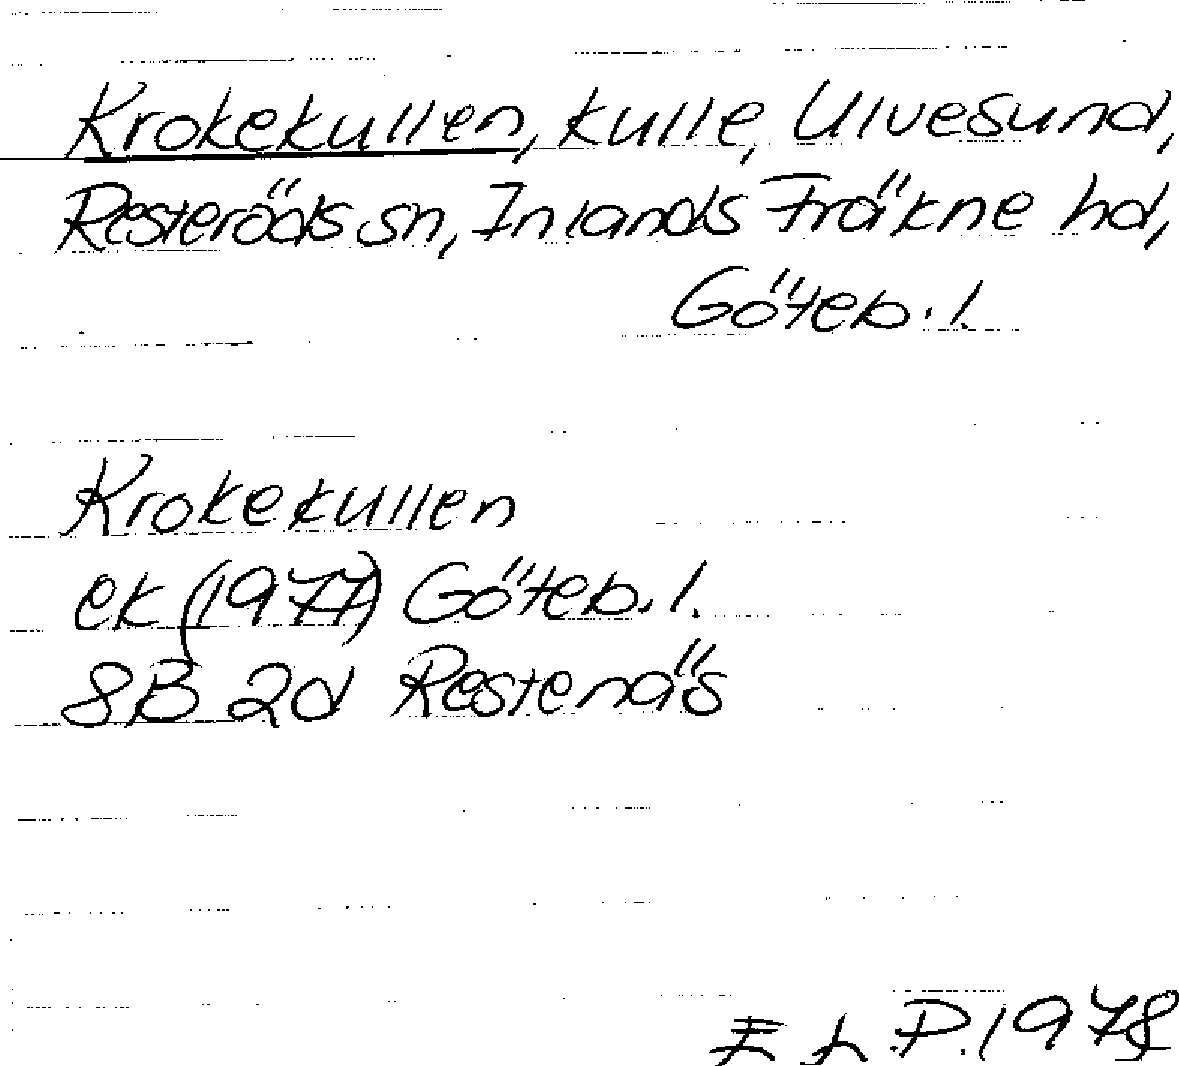 Krokekullen, kulle, Ulvesund,
Resteröds sn, Inlands Fräkne hd,
Göteb. l.
Krokekullen
ek (1977) Göteb. l.
8B 2d Restenäs
E L P. 1978